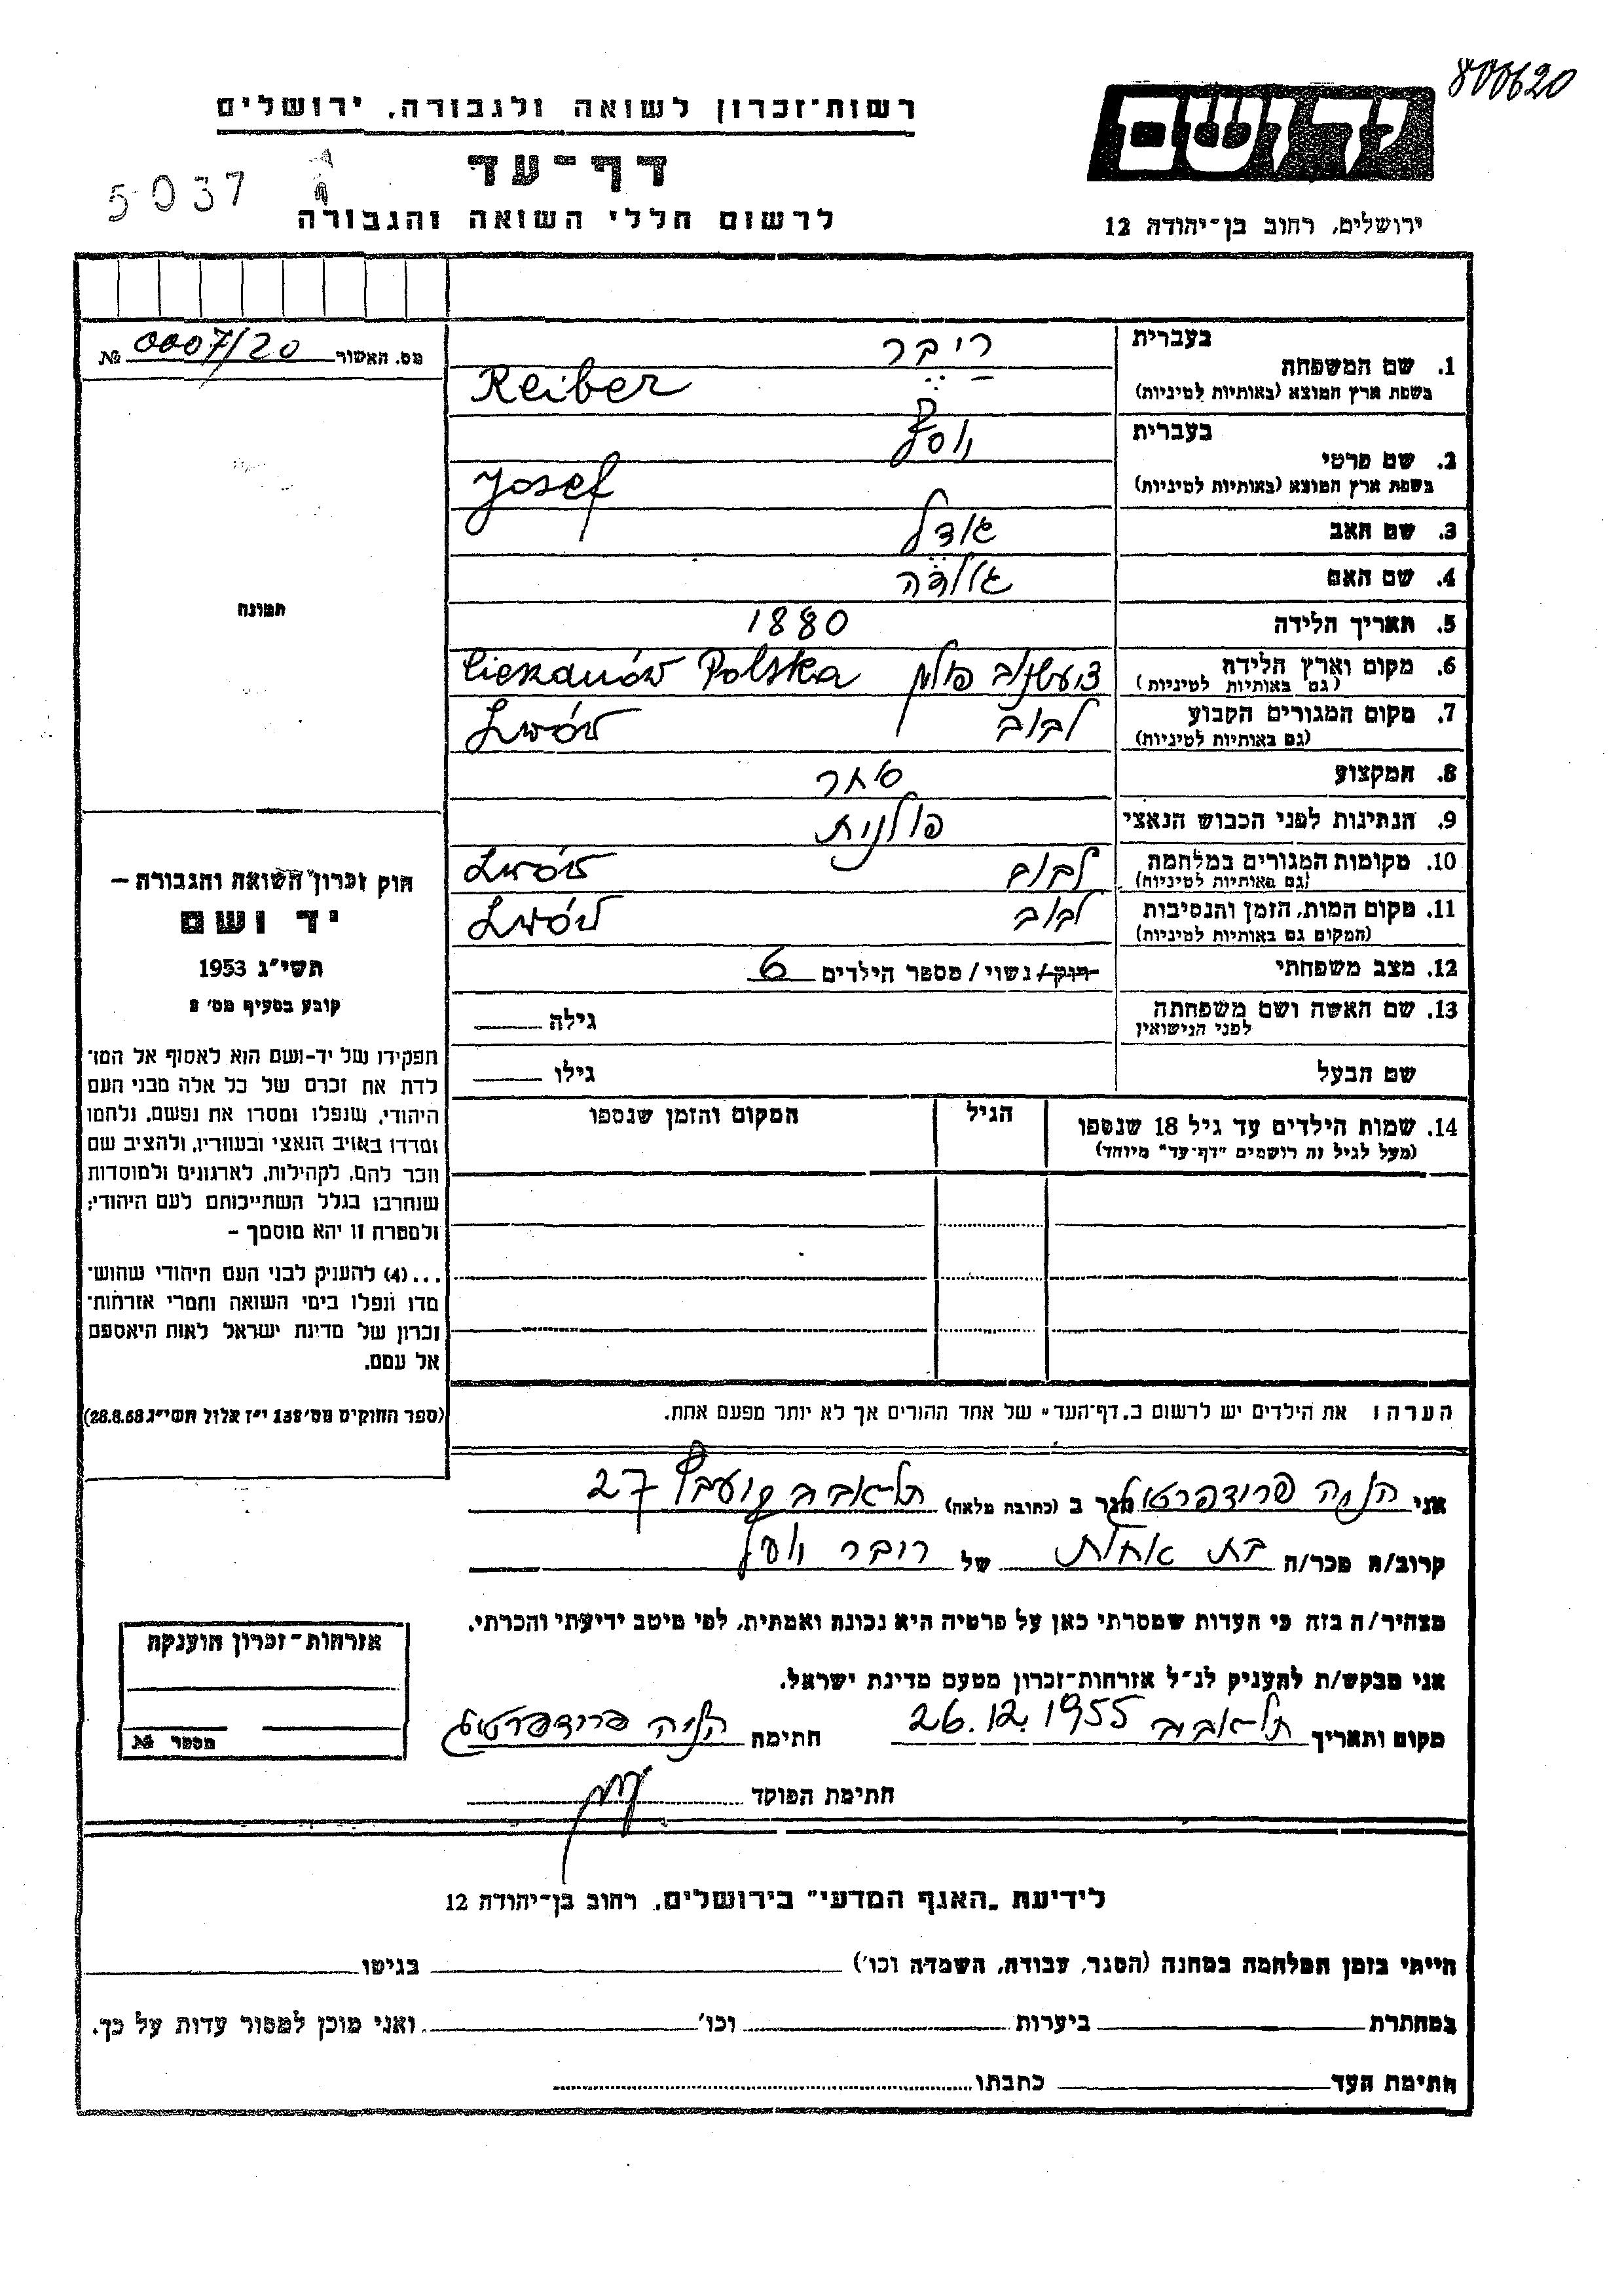 800620
יד ושם
רשות־זכרון לשואה ולגבורה, ירושלים
דף־עד
5037
לרשום חללי השואה והגבורה
ירושלים, רחוב בן־יהודה 12
מס. האשור 0007/20 №
בעברית
1. שם המשפחה
בשפת ארץ המוצא (באותיות לטיניות)
ריבר
Reiber
בעברית
2. שם פרטי
בשפת ארץ המוצא (באותיות לטיניות)
יוסף
Josef
3. שם האב
אודל
4. שם האם
5. תאריך הלידה
1880
6. מקום וארץ הלידה
(גם באותיות לטיניות)
פולין Cieszanów Polska
7. מקום המגורים הקבוע
(גם באותיות לטיניות)
לבוב Lwów
8. המקצוע
סוחר
9. הנתינות לפני הכבוש הנאצי
פולנית
10. מקומות המגורים במלחמה
(גם באותיות לטיניות)
לבוב Lwów
11. מקום המות, הזמן והנסיבות
(המקום גם באותיות לטיניות)
לבוב Lwów
12. מצב משפחתי
רווק/נשוי/מספר הילדים 6
13. שם האשה ושם משפחתה
לפני הנישואין
גילה
שם הבעל
גילו
14. שמות הילדים עד גיל 18 שנספו
(מעל לגיל זה רושמים "דף־עד" מיוחד)
הגיל
המקום והזמן שנספו
הערה: את הילדים יש לרשום ב„דף־העד" של אחד ההורים אך לא יותר מפעם אחת.
תמונה
חוק זכרון השואה והגבורה –
יד ושם
תשי"ג 1953
קובע בסעיף מס' 2
תפקידו של יד־ושם הוא לאסוף אל המו־
לדת את זכרם של כל אלה מבני העם
היהודי, שנפלו ומסרו את נפשם, נלחמו
ומרדו באויב הנאצי ובעוזריו, ולהציב שם
וזכר להם, לקהילות, לארגונים ולמוסדות
שנחרבו בגלל השתייכותם לעם היהודי;
ולמטרה זו יהא מוסמך –
...(4) להעניק לבני העם היהודי שהוש־
מדו ונפלו בימי השואה והמרי אזרחות־
זכרון של מדינת ישראל לאות היאספם
אל עמם.
(ספר החוקים מס' 132 י"ז אלול תשי"ג 28.8.53)
אני הניה פרידפרטיג הגר ב (כתובה מלאה) תל־אביב 27
קרוב/ה מכר/ה בת אחות של ריבר יוסף
מצהיר/ה בזה כי העדות שמסרתי כאן על פרטיה היא נכונה ואמתית, לפי מיטב ידיעתי והכרתי.
אני מבקש/ת להעניק לנ"ל אזרחות־זכרון מטעם מדינת ישראל.
מקום ותאריך תל־אביב 26.12.1955 חתימה הניה פרידפרטיג
חתימת הפוקד
אזרחות־זכרון הוענקה
מספר №
לידיעת „האגף המדעי" בירושלים, רחוב בן־יהודה 12
הייתי בזמן המלחמה במחנה (הסגר, עבודה, השמדה וכו') בגיטו
במחתרת ביערות וכו' ואני מוכן למסור עדות על כך.
חתימת העד כתבתו